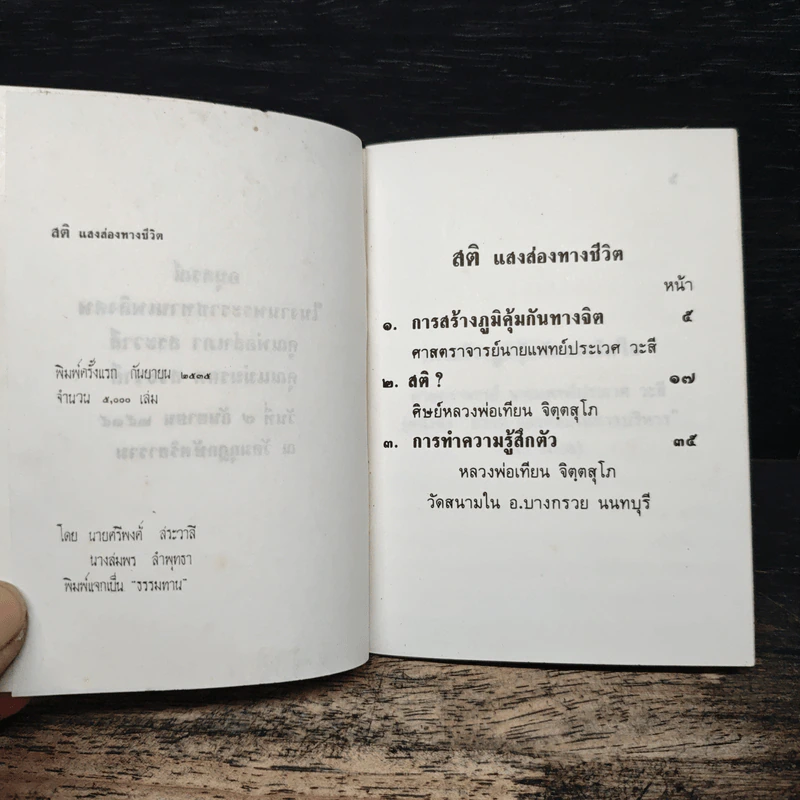 สติ แสงส่องทางชีวิต
พิมพ์ครั้งแรก กันยายน ๒๕๓๕
จำนวน ๕,๐๐๐ เล่ม
โดย นายศรีพงศ์ สระวาสี
นางสมพร ลำพุทธา
พิมพ์แจกเป็น “ธรรมทาน”
สติ แสงส่องทางชีวิต
หน้า
๑. การสร้างภูมิคุ้มกันทางจิต ๕
ศาสตราจารย์นายแพทย์ประเวศ วะสี
๒. สติ ? ๑๗
ศิษย์หลวงพ่อเทียน จิตฺตสุโภ
๓. การทำความรู้สึกตัว ๓๕
หลวงพ่อเทียน จิตฺตสุโภ
วัดสนามใน อ.บางกรวย นนทบุรี